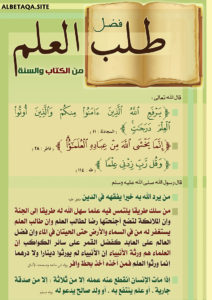 ALBETAQA.SITE
فضل
طلب العلم
من الكتاب والسنة
قال الله تعالى :
﴿ يَرْفَعِ اللَّهُ الَّذِينَ ءَامَنُوا مِنكُمْ وَالَّذِينَ أُوتُوا
الْعِلْمَ دَرَجَٰتٍ ﴾ [ المجادلة : ١١ ]
﴿ إِنَّمَا يَخْشَى اللَّهَ مِنْ عِبَادِهِ الْعُلَمَٰٓؤُا ﴾ [ فاطر : ٢٨ ]
﴿ وَقُل رَّبِّ زِدْنِي عِلْمًا ﴾ [ طه : ١١٤ ]
قال رسول الله صلى الله عليه وسلم
من يرد الله به خيرا يفقهه في الدين
من سلك طريقا يلتمس فيه علما سهل الله له طريقا إلى الجنة
وإن الملائكة لتضع أجنحتها رضا لطالب العلم وإن طالب العلم
يستغفر له من في السماء والأرض حتى الحيتان في الماء وإن فضل
العالم على العابد كفضل القمر على سائر الكواكب إن
العلماء هم ورثة الأنبياء إن الأنبياء لم يورثوا دينارا ولا درهما
إنما ورثوا العلم فمن أخذه أخذ بحظ وافر
إذا مات الإنسان انقطع عنه عمله إلا من ثلاثة : إلا من صدقة
جارية . أو علم ينتفع به . أو ولد صالح يدعو له